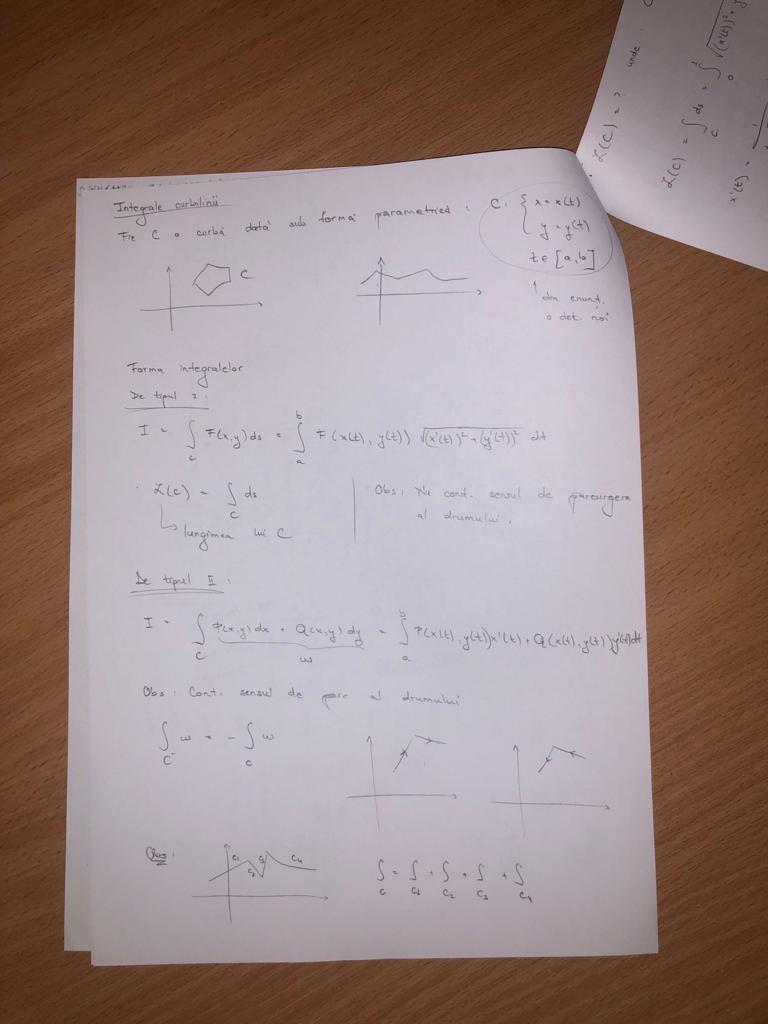 Integrale curbilinii
Fie C o curbă dată sub formă parametrică : C: { x = x(t)
y = y(t)
t ∈ [a, b]
C
↑ din enunț.
o det. noi
Forma integralelor
De tipul 1 :
I = ∫_C F(x,y) ds = ∫_a^b F(x(t), y(t)) √((x'(t))² + (y'(t))²) dt
L(C) = ∫_C ds
↳ lungimea lui C
Obs: Nu cont. sensul de parcurgere
al drumului.
De tipul II :
I = ∫_C P(x,y) dx + Q(x,y) dy = ∫_a^b P(x(t), y(t)) x'(t) + Q(x(t), y(t)) y'(t) dt
ω
Obs : Cont. sensul de parc al drumului
∫_C⁻ ω = - ∫_C ω
Obs :
C1 C2 C3 C4
∫_C = ∫_C1 + ∫_C2 + ∫_C3 + ∫_C4
L(C) = ? unde :
L(C) = ∫_C ds = ∫_0^1 √((x'(t))² +
x'(t) =